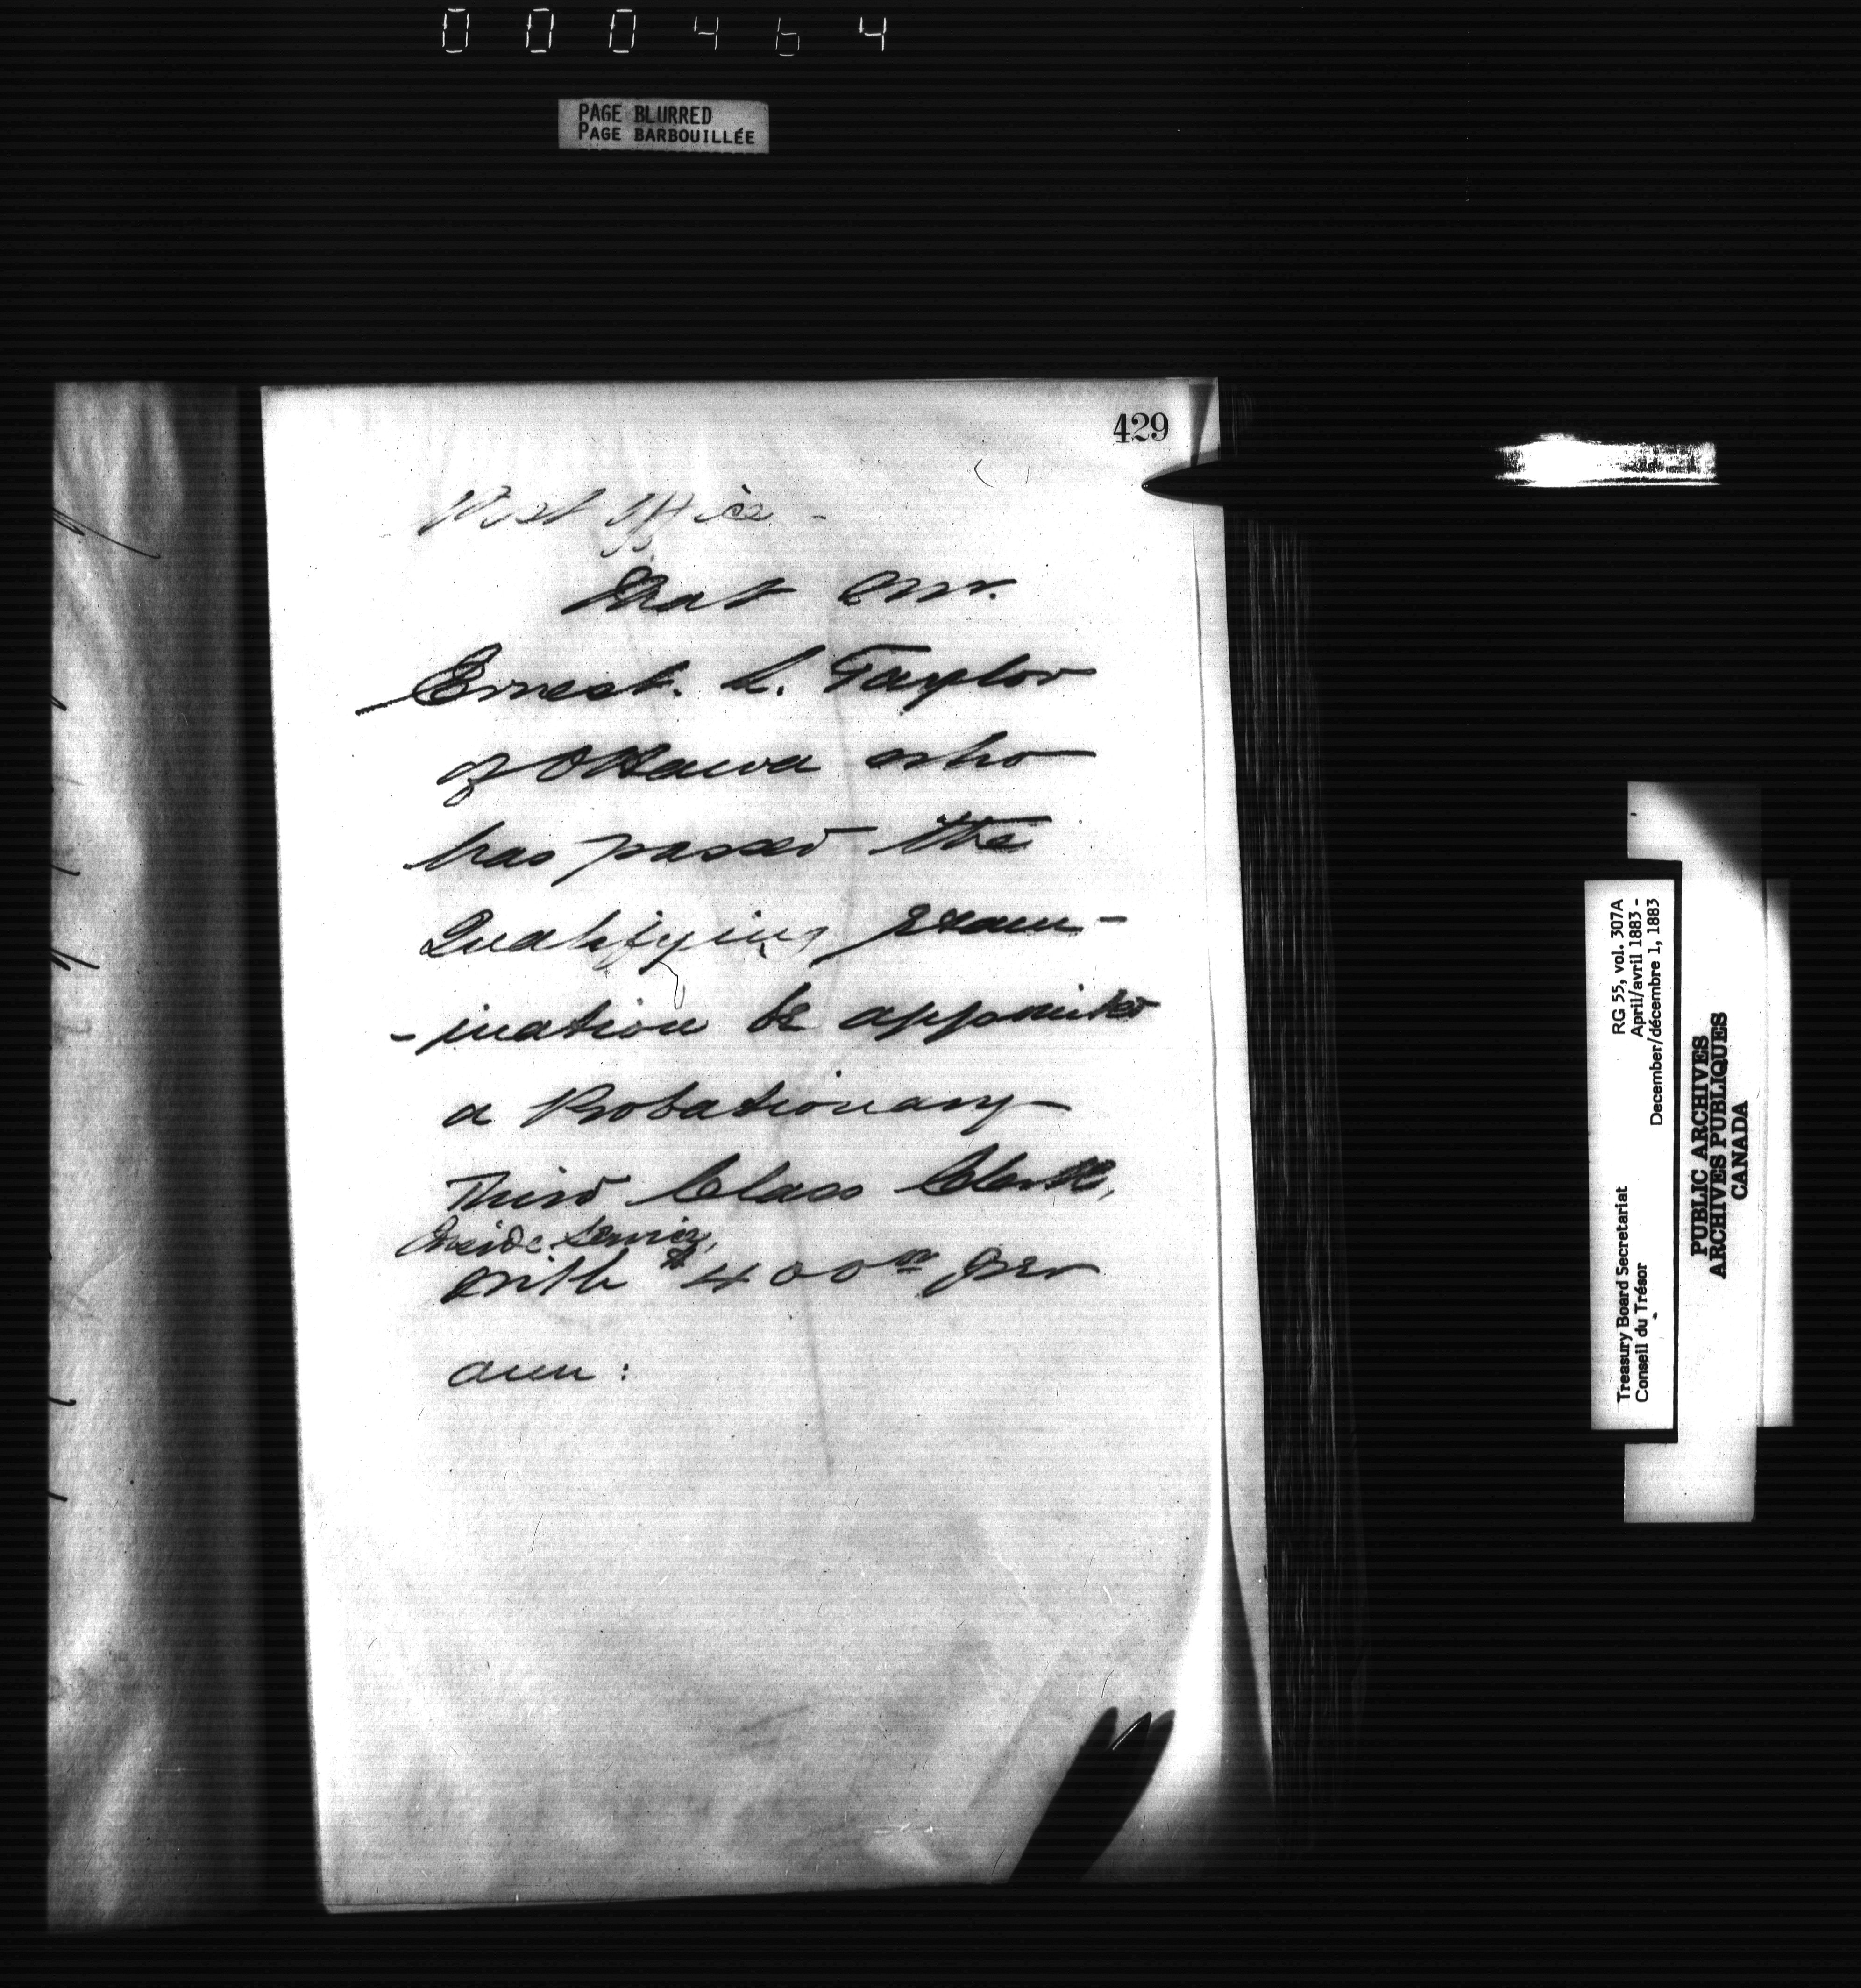 000464
PAGE BLURRED
PAGE BARBOUILLÉE
429
Post Office -
That Mr.
Ernest. L. Taylor
of Ottawa who
has passed the
Qualifying exam-
-ination be appointed
a Probationary
Third Class Clerk,
Inside Service,
with $400 00 per
ann:
RG 55, vol. 307A
April/avril 1883 -
December/décembre 1, 1883
Treasury Board Secretariat
Conseil du Trésor
PUBLIC ARCHIVES
ARCHIVES PUBLIQUES
CANADA